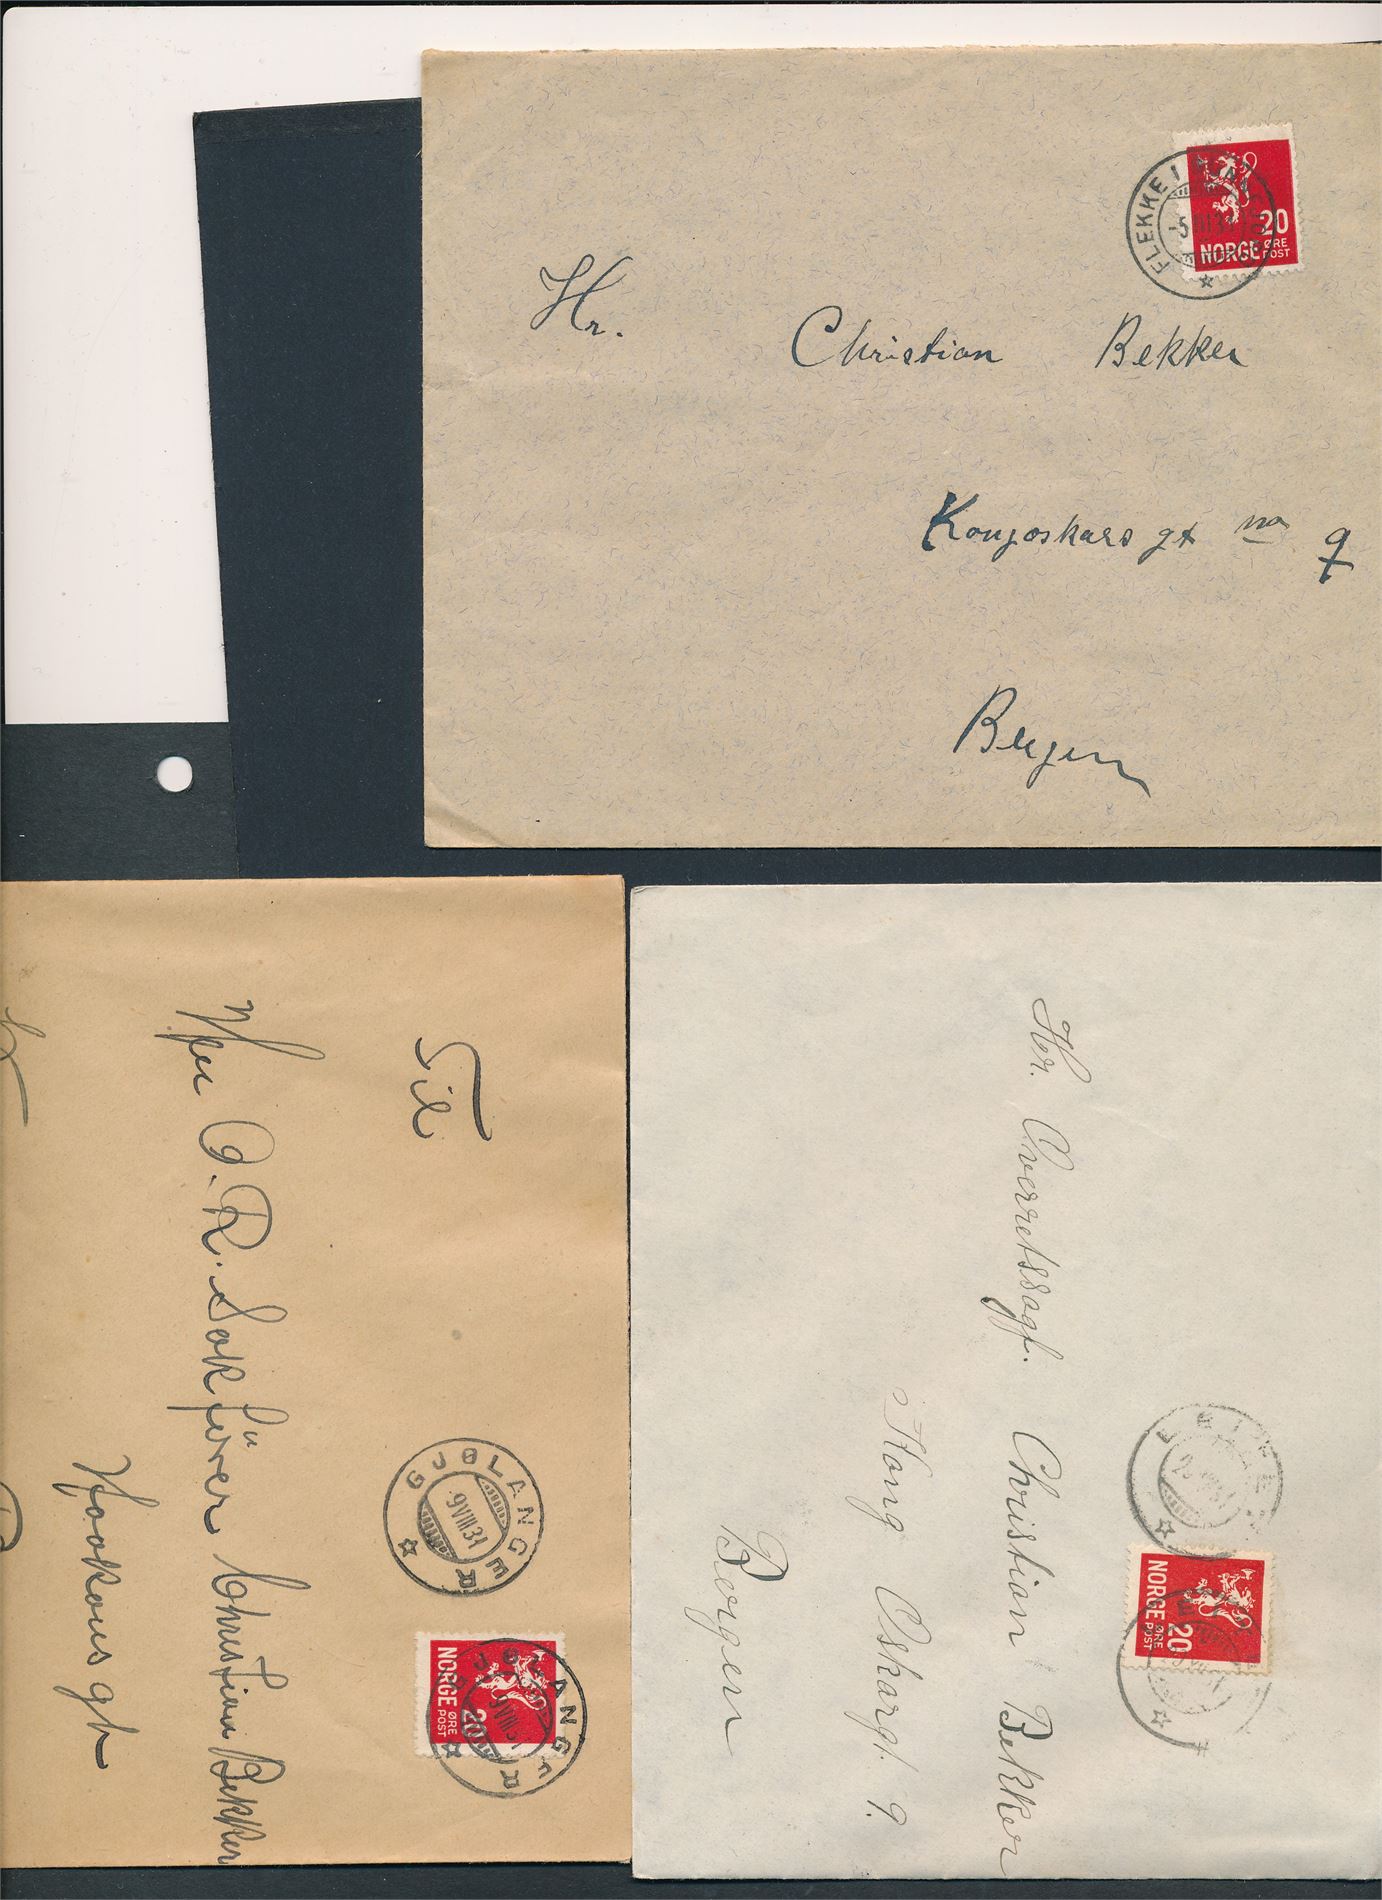 FLEKKE I
-5 III 3
20
NORGE ØRE POST
Hr. Christian Bekker
Kongoskars gt no 9
Bergen
Til
Herr O.R. Sakfører Christian Bekker
Haakonsgt
GJØLANGER
-9 VIII 34
NORGE ØRE POST 20
GJØLANGER
Hr. Overretssagf. Christian Bekker
Kong Oskarsgt. 9.
Bergen
NORGE ØRE POST 20